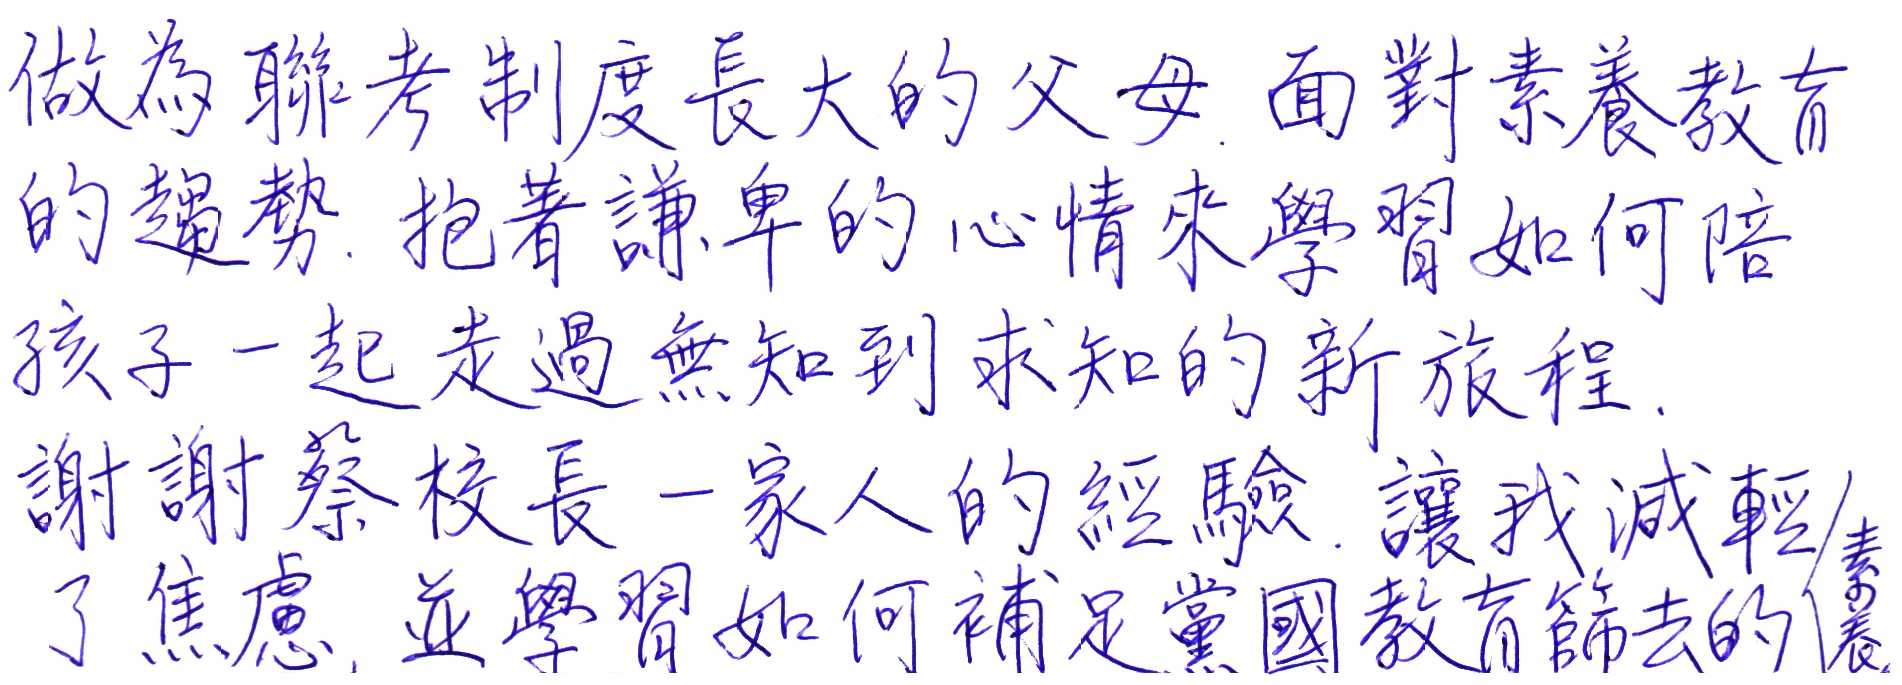 做為聯考制度長大的父母.面對素養教育
的趨勢.抱著謙卑的心情來學習如何陪
孩子一起走過無知到求知的新旅程.
謝謝蔡校長一家人的經驗.讓我減輕
了焦慮.並學習如何補足黨國教育篩去的
素養